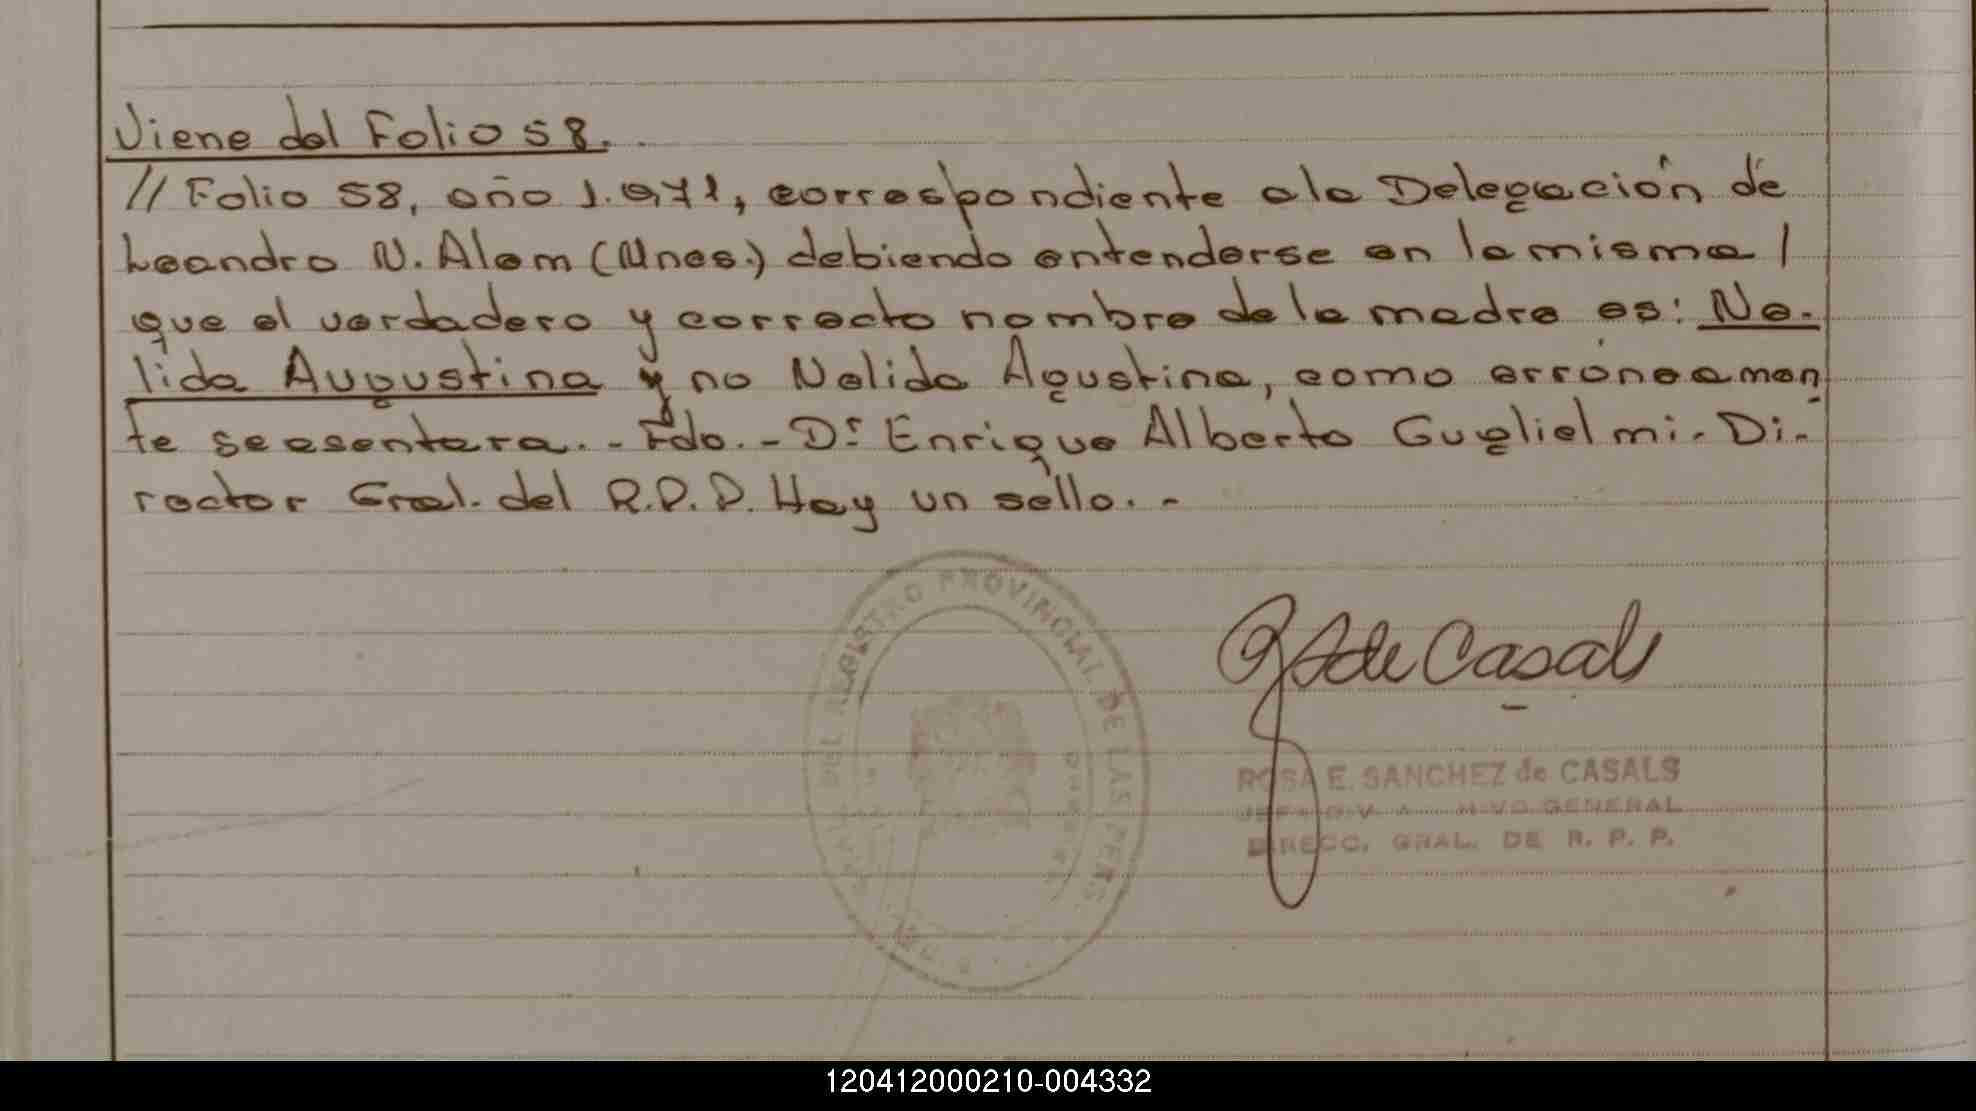 Viene del Folio 58.
// Folio 58, año 1.971, correspondiente a la Delegación de
Leandro N. Alem (Mnes.) debiendo entenderse en la misma /
que el verdadero y correcto nombre de la madre es: Ne-
lida Augustina y no Nelida Agustina, como erróneamen
te se asentara.. - Fdo. - Dr Enrique Alberto Guglielmi - Di-
rector Gral. del R.P.P. Hay un sello. -
DEL REGISTRO PROVINCIAL DE LAS PERS.
de Casals
ROSA E. SANCHEZ de CASALS
GENERAL
DIRECC. GRAL. DE R. P. P.
120412000210-004332